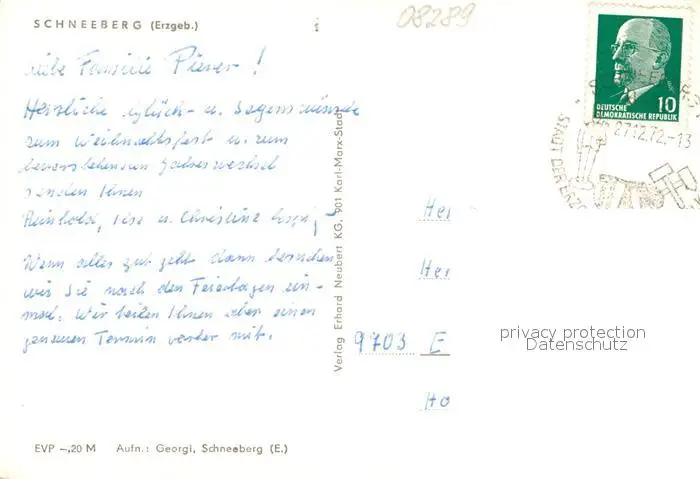 SCHNEEBERG (Erzgeb.)
08289
Liebe Familie Piever!
Herzliche Glück- u. Segenswünsche
zum Weihnachtsfest u. zum
bevorstehenden Jahreswechsel
senden Ihnen
Reinhold, u. Christine
Wenn alles gut geht dann besuchen
wir Sie nach den Feiertagen ein-
mal. Wir teilen Ihnen aber einen
genauen Termin vorher mit.
EVP –,20 M Aufn.: Georgi, Schneeberg (E.)
Verlag Erhard Neubert KG, 901 Karl-Marx-Stadt
10
DEUTSCHE
DEMOKRATISCHE REPUBLIK
27.12.72.-13
STADT DER
Her
Her
9703 E
Ho
privacy protection
Datenschutz